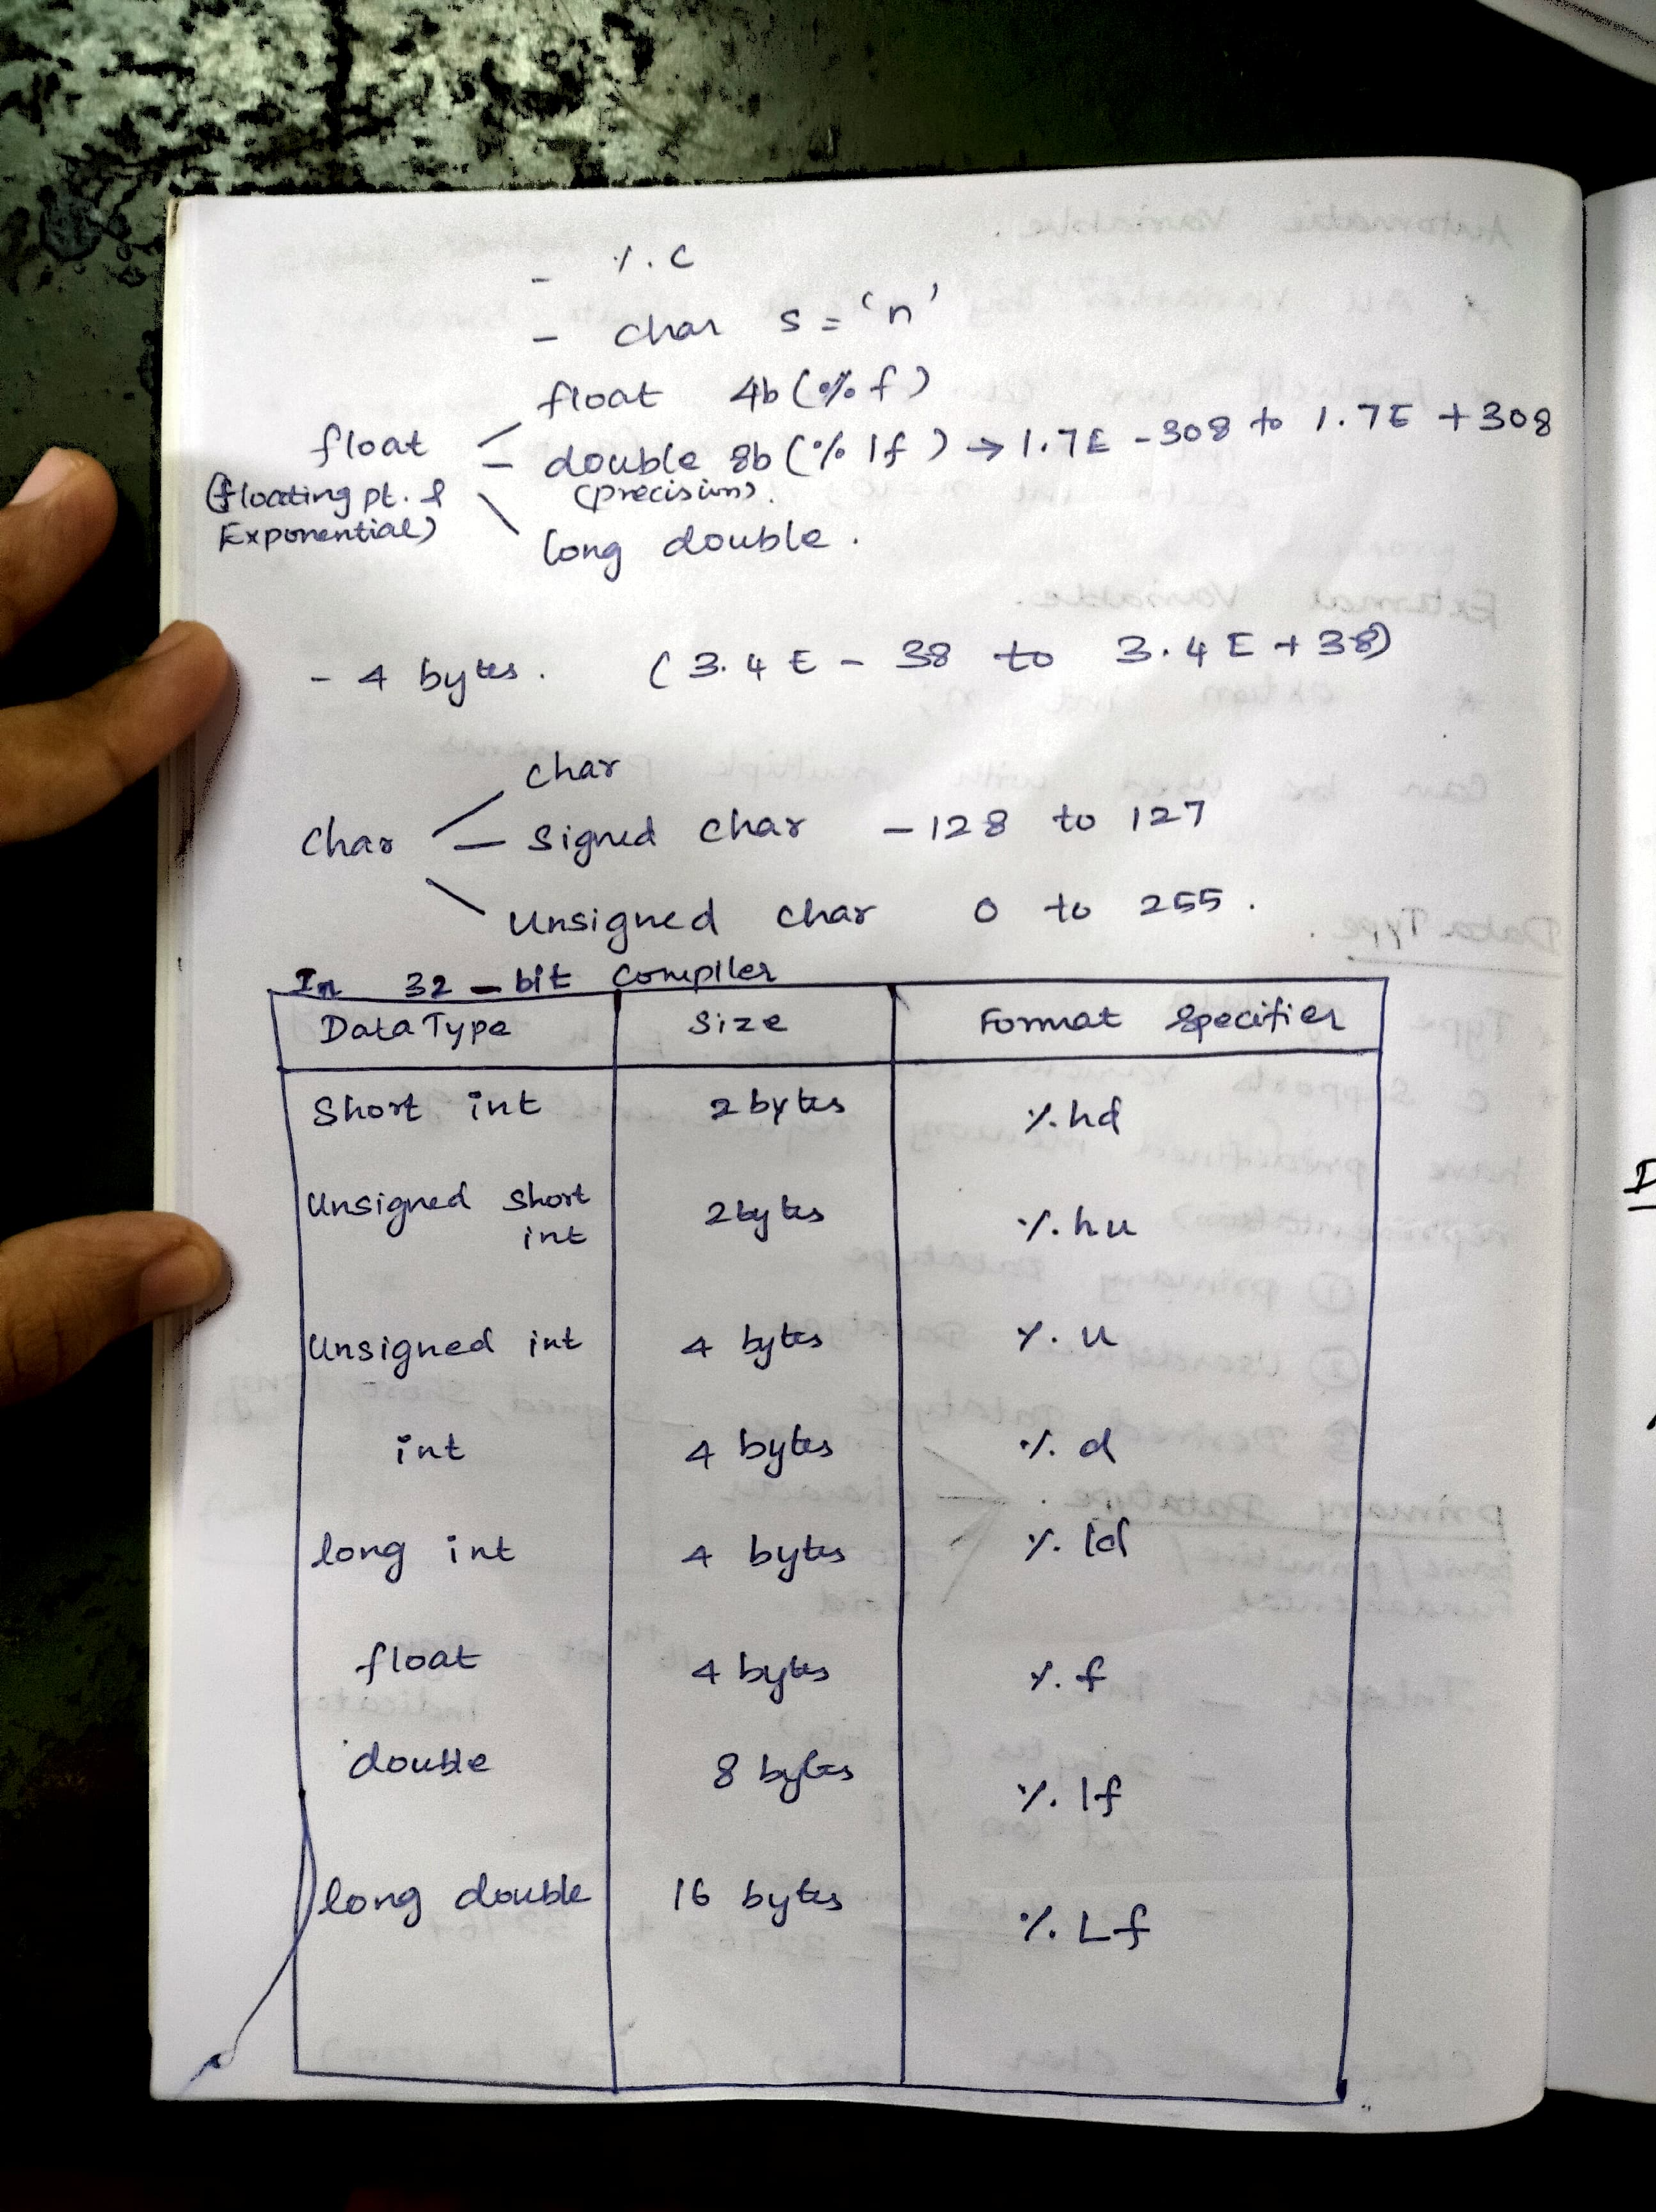 - %c
- char s = 'n'
float 4b (% f)
float - double 8b (% lf) → 1.7E -308 to 1.7E +308
(floating pt. & (precision).
Exponential)
long double.
- 4 bytes. (3.4E - 38 to 3.4E + 38)
char
char - signed char -128 to 127
Unsigned char 0 to 255.
In 32-bit compiler
Data Type Size Format Specifier
Short int 2 bytes %hd
Unsigned Short 2 bytes %hu
int
Unsigned int 4 bytes %u
int 4 bytes %d
long int 4 bytes %ld
float 4 bytes %f
double 8 bytes %lf
long double 16 bytes %Lf